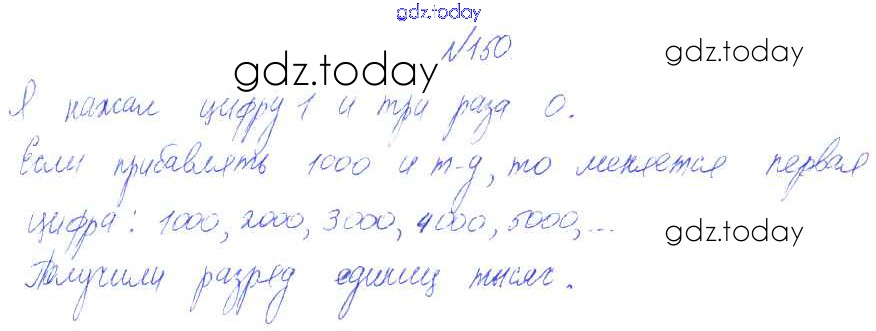 gdz.today
№150.
gdz.today
gdz.today
Я нажал цифру 1 и три раза 0.
Если прибавлять 1000 и т-д, то меняется первая
цифра: 1000, 2000, 3000, 4000, 5000, ...
gdz.today
Получили разряд единиц тысяч.